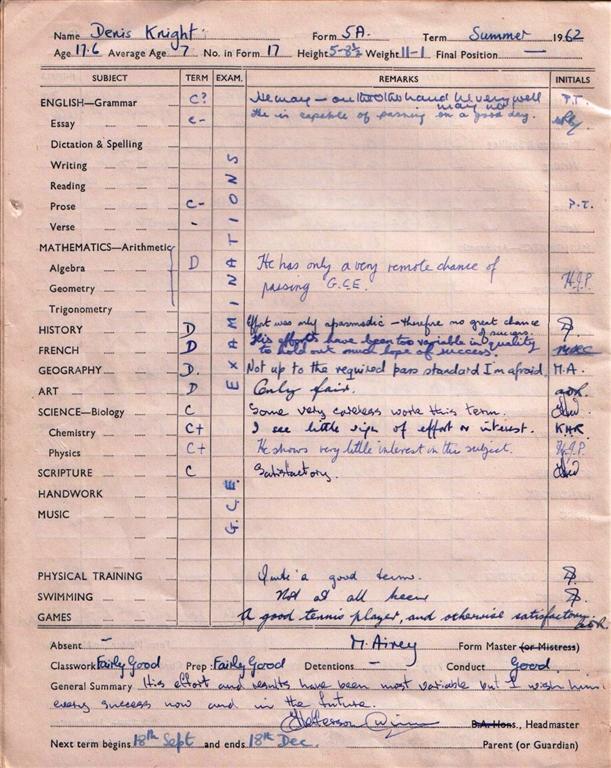 Name Denis Knight Form 5A. Term Summer 1962
Age 17.6 Average Age 7 No. in Form 17 Height 5-8½ Weight 11-1 Final Position —
SUBJECT TERM EXAM. REMARKS INITIALS
ENGLISH—Grammar C? He may — on the other hand he very well may not P.T.
Essay C- He is capable of passing on a good day.
Dictation & Spelling
Writing
Reading
Prose C- P.T.
Verse -
MATHEMATICS—Arithmetic
Algebra D He has only a very remote chance of
Geometry passing G.C.E. H.J.P.
Trigonometry
HISTORY D Effort was only spasmodic — therefore no great chance of success.
FRENCH D His efforts have been too variable in quality to hold out much hope of success.
GEOGRAPHY D. Not up to the required pass standard I'm afraid. M.A.
ART D Only fair.
SCIENCE—Biology C Some very careless work this term.
Chemistry C+ I see little sign of effort or interest. KHR
Physics C+ He shows very little interest in the subject. H.J.P.
SCRIPTURE C Satisfactory.
HANDWORK
MUSIC
G.C.E. EXAMINATIONS
PHYSICAL TRAINING Quite a good term.
SWIMMING Not at all keen
GAMES A good tennis player, and otherwise satisfactory.
Absent — M. Airey Form Master (or Mistress)
Classwork Fairly Good Prep: Fairly Good Detentions — Conduct Good
General Summary His effort and results have been most variable but I wish him
every success now and in the future.
B.A. Hons., Headmaster
Next term begins 18th Sept and ends 18th Dec. Parent (or Guardian)